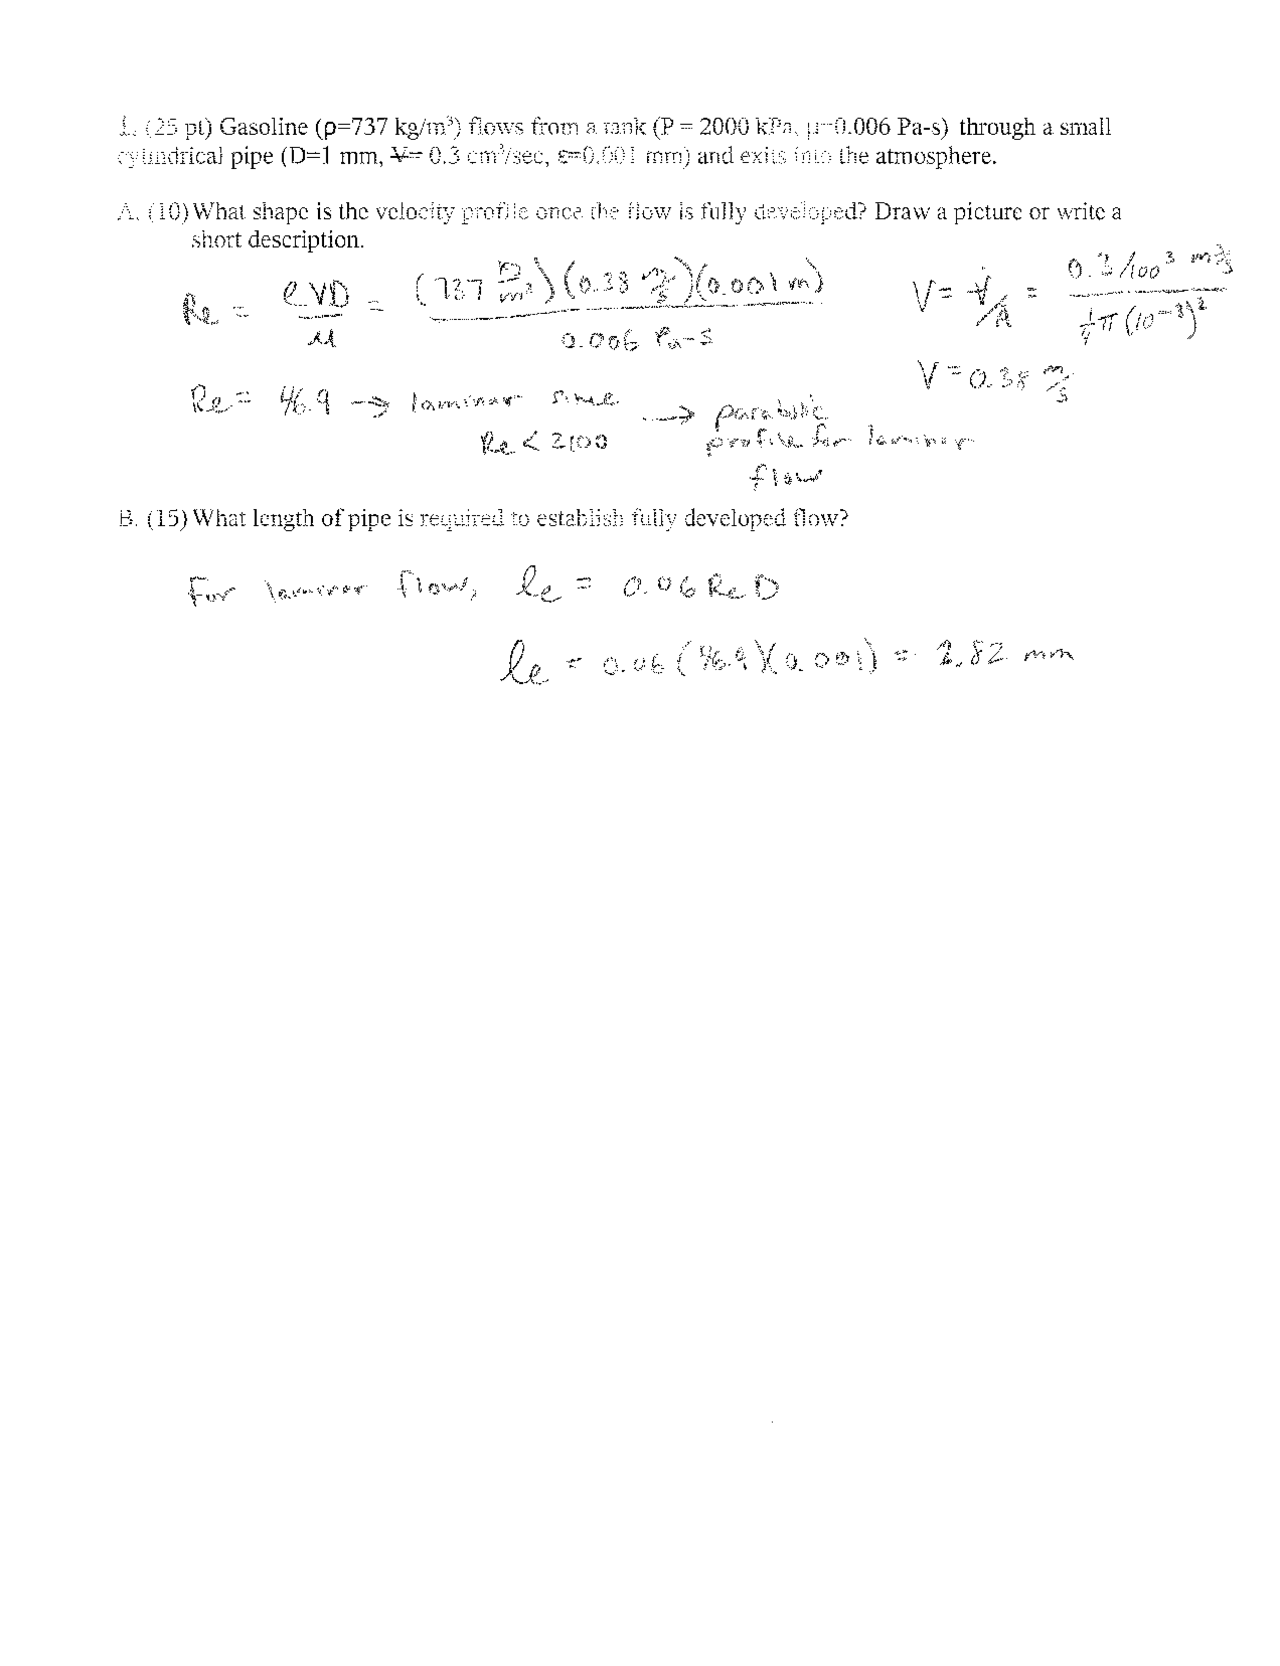 1. (25 pt) Gasoline (ρ=737 kg/m³) flows from a tank (P = 2000 kPa, μ=0.006 Pa-s) through a small
cylindrical pipe (D=1 mm, V̶= 0.3 cm³/sec, ε=0.001 mm) and exits into the atmosphere.
A. (10) What shape is the velocity profile once the flow is fully developed? Draw a picture or write a
short description.
Re = ρVD/μ = (737 kg/m³)(0.38 m/s)(0.001 m) / 0.006 Pa-s
V = V̇/A = 0.3/100³ m³/s / ¼π(10⁻³)²
V = 0.38 m/s
Re = 46.9 → laminar since → parabolic
Re < 2100 profile for laminar
flow
B. (15) What length of pipe is required to establish fully developed flow?
For laminar flow, le = 0.06 Re D
le = 0.06 (46.9)(0.001) = 2.82 mm